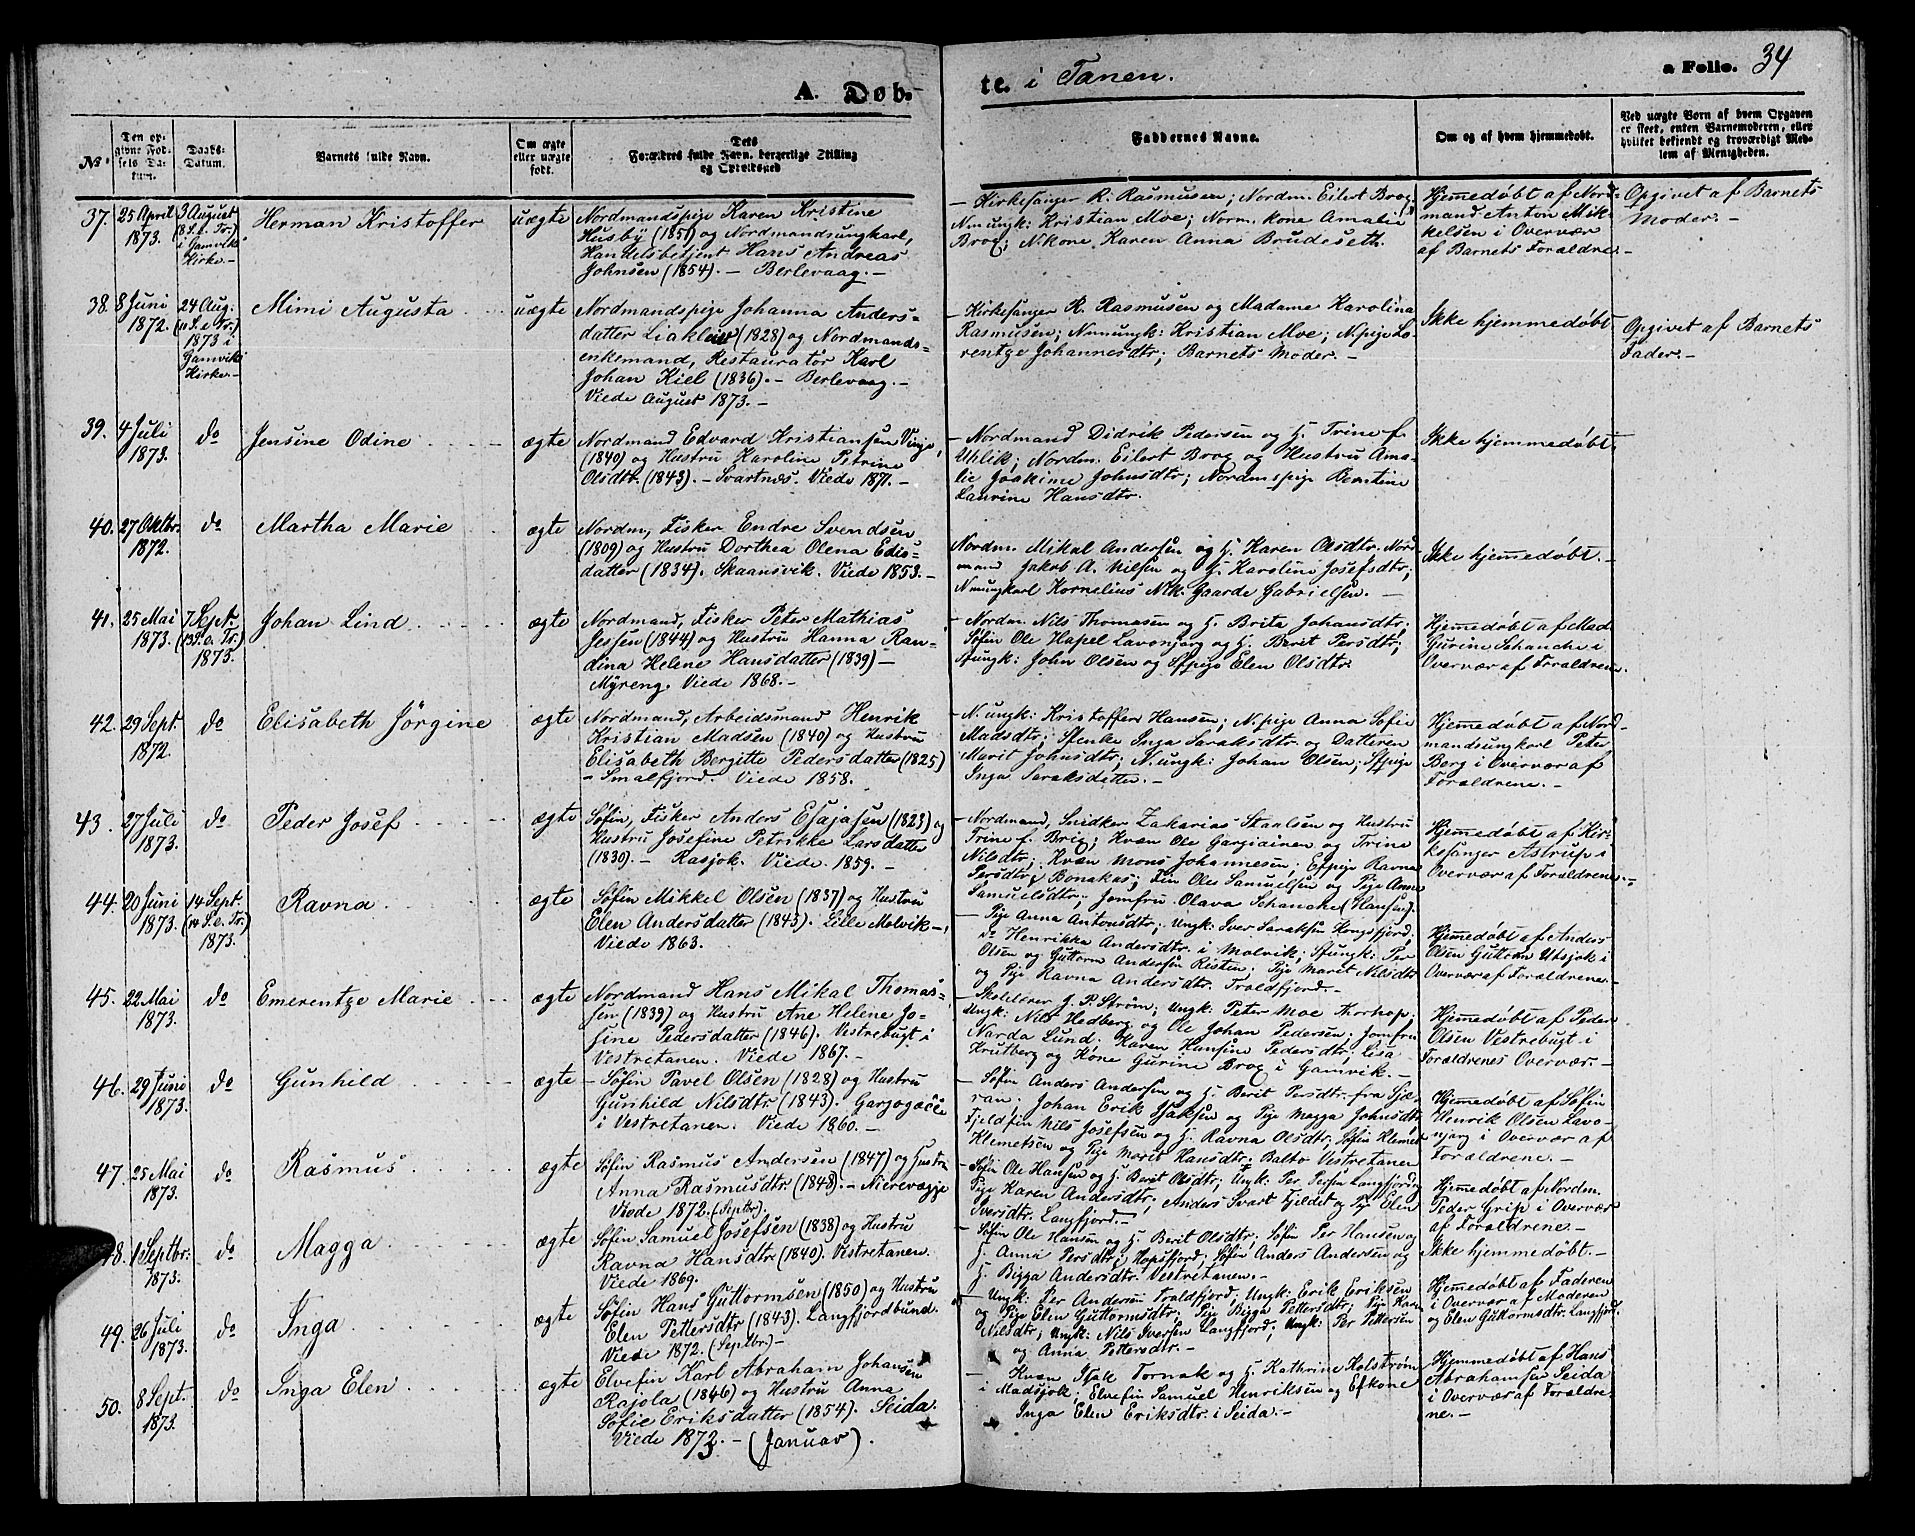 A. Døb-
te. i Tanen.
a Folio. 34
No
Den opgivne Fødsels Datum.
Daabs-Datum.
Barnets fulde Navn.
Om ægte eller uægte født.
Forældres fulde Navn, borgerlige Stilling og Opholdssted
Faddernes Navne.
Om og af hvem hjemmedøbt.
Ved uægte Børn af hvem Opgaven er skeet, enten Barnemoderen, eller hvilket bekjendt og troværdigt Medlem af Menigheden.
37. 25 April 1873. 3 August (8 S. e. Tr.) i Gamvik Kirke.-
Herman Kristoffer
uægte
Nordmandspige Karen Kristine
Husby (1851) og Nordmandsungkarl,
Handelsbetjent Hans Andreas
Johnsen (1854). - Berlevaag. -
- Kirkesanger R. Rasmusen; Nordm. Eilert Brog
Nmungk: Kristian Moe; Norm. kone Amalie
Brog; N. kone Karen Anna Brudeseth.
Hjemmedøbt af Nord-
mand Anton Mik-
kelsen i Overvær
af Barnets Forældre. -
Opgivet af Barnets
Moder. -
38. 8 Juni 1872. 24 Aug. (11 S. e. Tr.) 1873 i Gamvik Kirke.-
Mimi Augusta
uægte
Nordmandspige Johanna Anders-
datter Liakleiv (1828) og Nordmands-
enkemand, Restauratør Karl
Johan Kiel (1836). - Berlevaag. -
Viede August 1873. -
- Kirkesanger R. Rasmusen og Madame Karolina
Rasmusen; Nmungk: Kristian Moe; N.pige Lo-
rentze Johannesdtr; Barnets Moder. -
Ikke hjemmedøbt
Opgivet af Barnets
Fader. -
39. 4 Juli 1873. do
Jensine Odine
ægte
Nordmand Edvard Kristiansen Vinje,
(1840) og Hustru Karoline Petrine
Olsdtr. (1843). - Svartnes. Viede 1871. -
- Nordmand Didrik Pedersen og H. Trine f.
Uplik; Nordm. Eilert Brog og Hustru Ama-
lie Joakime Johnsdtr; Nordm.spige Berntine
Laurine Hansdtr.
Ikke hjemmedøbt
40. 27 Oktbr. 1872. do
Martha Marie
ægte
Nordm, Fisker Endre Svendsen
(1809) og Hustru Dorthea Olena Edis-
datter (1834). Skaansvik. Viede 1853. -
Nordm. Mikal Andersen og H. Karen Olsdtr. Nord-
mand Jakob A. Nilsen og H. Karoline Josefsdtr;
Nmungkarl Kornelius Nik. Gaarde Gabrielsen. -
Ikke hjemmedøbt. -
41. 25 Mai 1873. 7 Sept. (13 S. e. Tr.) 1873.
Johan Lind
ægte
Nordmand, Fisker Peter Mathias
Jessen (1844) og Hustru Hanna Ran-
dina Helene Hansdatter (1839) -
Myreng. Viede 1868. -
- Nordm. Nils Thomasen og H. Brita Johansdtr;
Søfin Ole Hapel Lavonjarg og H. Berit Persdtr;
Sfungk: John Olsen og Sfpige Elen Olsdtr.
Hjemmedøbt af Mad.
Gurine Schanche i
Overvær af Forældrene.
42. 29 Sept. 1872. do
Elisabeth Jörgine
ægte
Nordmand, Arbeidsmand Henrik
Kristian Madsen (1840) og Hustru
Elisabeth Bergitte Pedersdatter (1825)
- Smalfjord. Viede 1858.
- N. ungk: Kristoffer Hansen; N. pige Anna Sofie
Madsdtr; Sfenke Inga Saraksdtr. og Datteren
Marit Johnsdtr; N. ungk: Johan Olsen; Sfpige
Inga Saraksdatter. -
Hjemmedøbt af Nord-
mandsungkarl Peter
Berg i Overvær af
Forældrene. -
43. 27 Juli 1873. do
Peder Josef
ægte
Søfin, Fisker Anders Esajasen (1823) og
Hustru Josefine Petrikke Larsdatter
(1830). - Rasjok. Viede 1859. -
- Nordmand, Snidker Zakarias Staalsen og Hustru
Trine f. Brig; Kvæn Ole Gargiainen og Trine
Nilsdtr; Kvæn Mons Johannesen; Efpige Ravna
Persdtr Bonakas; Fin Ole Samuelsen og Pige Anne
Samuelsdtr; Jomfru Olava Schanche (Hansen).
Hjemmedøbt af Kir-
kesanger Astrup i
Overvær af Forældrene. -
44. 20 Juni 1873. 14 Sept. (14 S. e. Tr.) 1873.
Ravna
ægte
Søfin Mikkel Olsen (1837) og Hustru
Elen Andersdatter (1843). Lille Molvik -,
Viede 1863.
- Pige Anna Antonsdtr; Ungk: Iver Saraksen Kongsfjord;
do Henrikka Andersdtr. i Molvik; Sfungk: Per
Olsen og Guttorm Andersen Risten; Pige Marit Nilsdtr
og Pige Ravna Andersdtr. Troldfjord. -
Hjemmedøbt af Anders
Olsen Guttorm Utsjok i
Overvær af Forældrene. -
45. 22 Mai 1873. do
Emerentze Marie
ægte
Nordmand Hans Mikal Thomas-
sen (1839) og Hustru Ane Helene Jo-
sine Pedersdatter (1846). Vestrebugt i
Vestretanen. Viede 1867. -
- Skolelærer J. P. Strøm; Ungk: Peter Moe
Ungk: Nils Hedberg og Ole Johan Pedersen; Jomfru
Narda Lund. Karen Hansine Pedersdtr; Lisa
Krutberg og Kone Gurine Brog i Gamvik. -
Hjemmedøbt af Peder
Olsen Vestrebugt i
Forældrenes Overvær. -
46. 29 Juni 1873. do
Gunhild
ægte
- Søfin Pavel Olsen (1828) og Hustru
Gunhild Nilsdtr. (1843). Gargogæčče
i Vestretanen. Viede 1860. -
- Søfin Anders Andersen og H. Berit Persdtr. fra Sjæ-
ran; Johan Erik Isaksen og Pige Magga Johnsdtr;
Fjeldfin Nils Josefsen og H. Ravna Olsdtr; Søfin Klemet
Klemetsen og Pige Marit Hansdtr. Balto Vestretanen
Hjemmedøbt af Søfin
Henrik Olsen Lavo-
njarg i Overvær af
Forældrene. -
47. 25 Mai 1873. do
Rasmus
ægte
Søfin Rasmus Andersen (1847) og Hustru
Anna Rasmusdtr. (1848). - Nierevægje
Viede 1872. (Septbr.)
- Søfin Ole Hansen og H. Berit Olsdtr; Ungk: Per Persen Langfjord;
Pige Karen Andersdtr; Anders Svart Fjeldet og Pige Elen
Iversdtr. Langfjord. -
Hjemmedøbt af Nordm.
Peder Grip i Overvær
af Forældrene. -
48. 1 Septbr. 1873. do
Magga
ægte
Søfin Samuel Josefsen (1838) og Hustru
Ravna Hansdtr. (1840). Vestretanen.
Viede 1869.
- Søfin Ole Hansen og H. Berit Olsdtr; Søfin Per Hansen og
H. Anna Persdtr; Hopsfjord; Søfin Anders Andersen og
H. Bigga Andersdtr. Vestretanen. -
Ikke hjemmedøbt. -
49. 26 Juli 1873. do
Inga
ægte
Søfin Hans Guttormsen (1850) og Hustru
Elen Pettersdtr (1843). Langfjordbund.
Viede 1872. (Septbr.) -
- Ungk: Per Andersen Troldfjord; Ungk: Erik Eriksen
og Pige Elen Guttormsdtr; Pige Bigga Pettersdtr; Pige Karen
Nilsdtr; Ungk: Nils Iversen Langfjord; Ungk: Per Pettersen
og Anna Pettersdtr. -
Hjemmedøbt af Faderen
i Overvær af Moderen
og Elen Guttormsdtr. Langfjord.
50. 8 Sept. 1873. do
Inga Elen
ægte
Elvefin Karl Abraham Johansen
Rajola (1846) og Hustru Anna
Sofie Eriksdatter (1854). Seida.
Viede 1873. - (Januar).
- Kvæn Isak Tornak og H. Kathrine Holstrøm
i Madsjok; Elvefin Samuel Henriksen og Efkone
Inga Elen Eriksdtr. i Seida. -
Hjemmedøbt af Hans
Abrahamsen Seida
i Overvær af Forældre-
ne. -